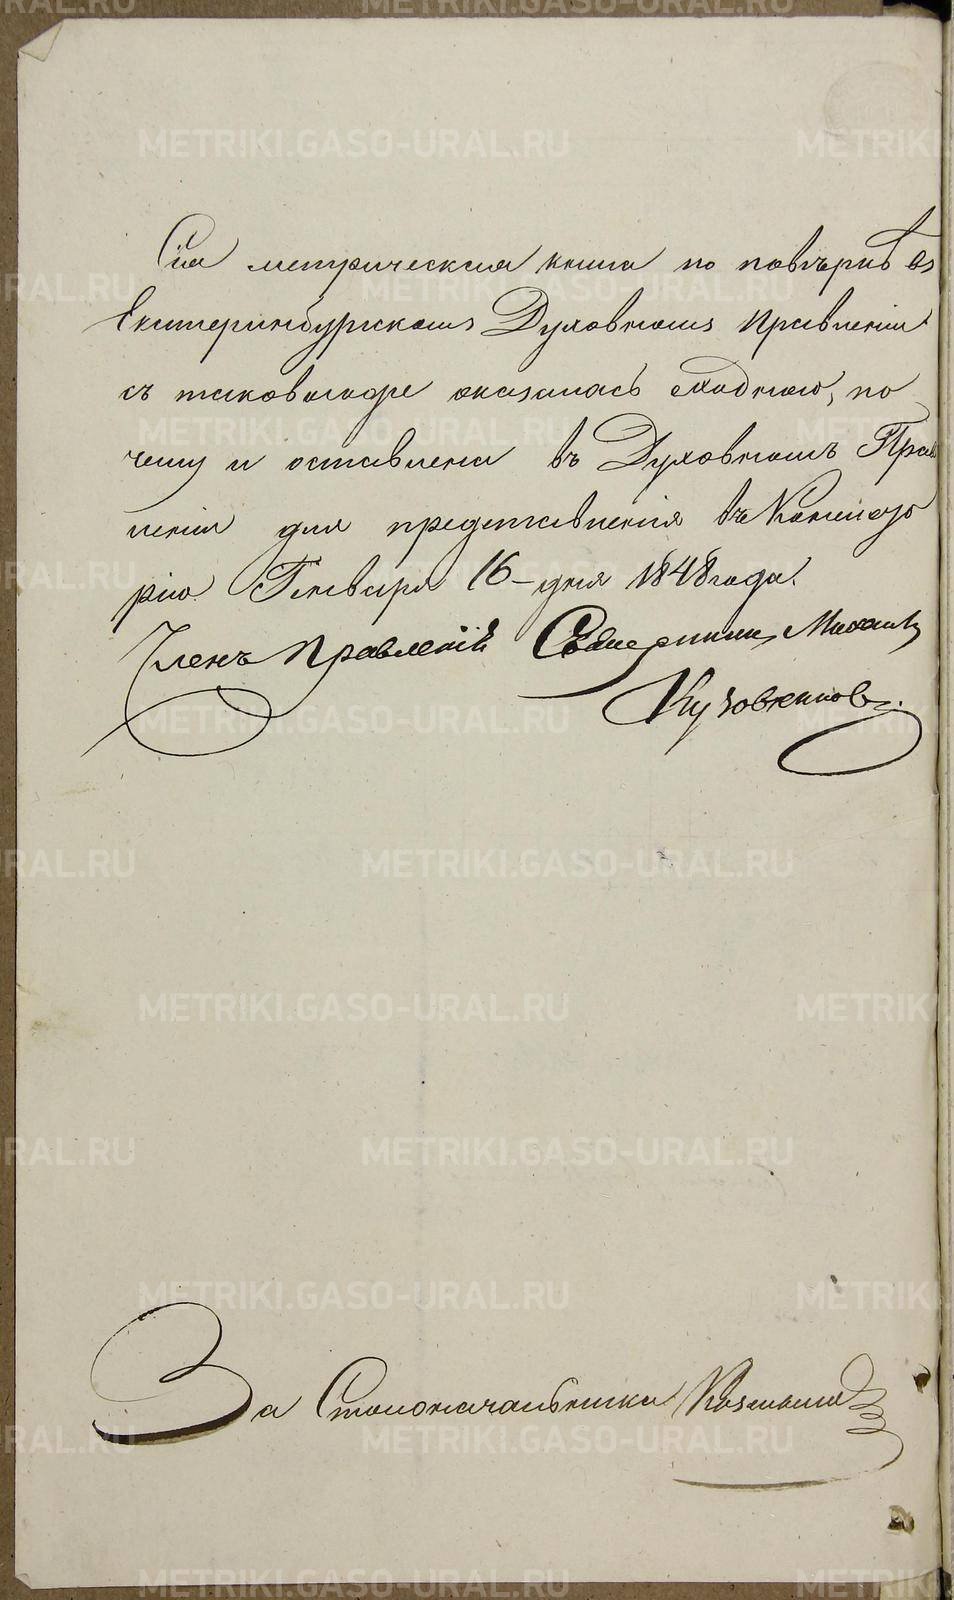 Сія метрическая книга по повѣркѣ въ
Екатеринбургскомъ Духовномъ Правленіи
съ таковоюже оказалась сходною, по
чему и оставлена въ Духовномъ Прав
леніи для представленія въ Консисто
рію. Генваря 16 – дня 1848 года.
Членъ Правленія Священникъ Михаилъ
Кузовниковъ.
За Столоначальника
METRIKI.GASO-URAL.RU